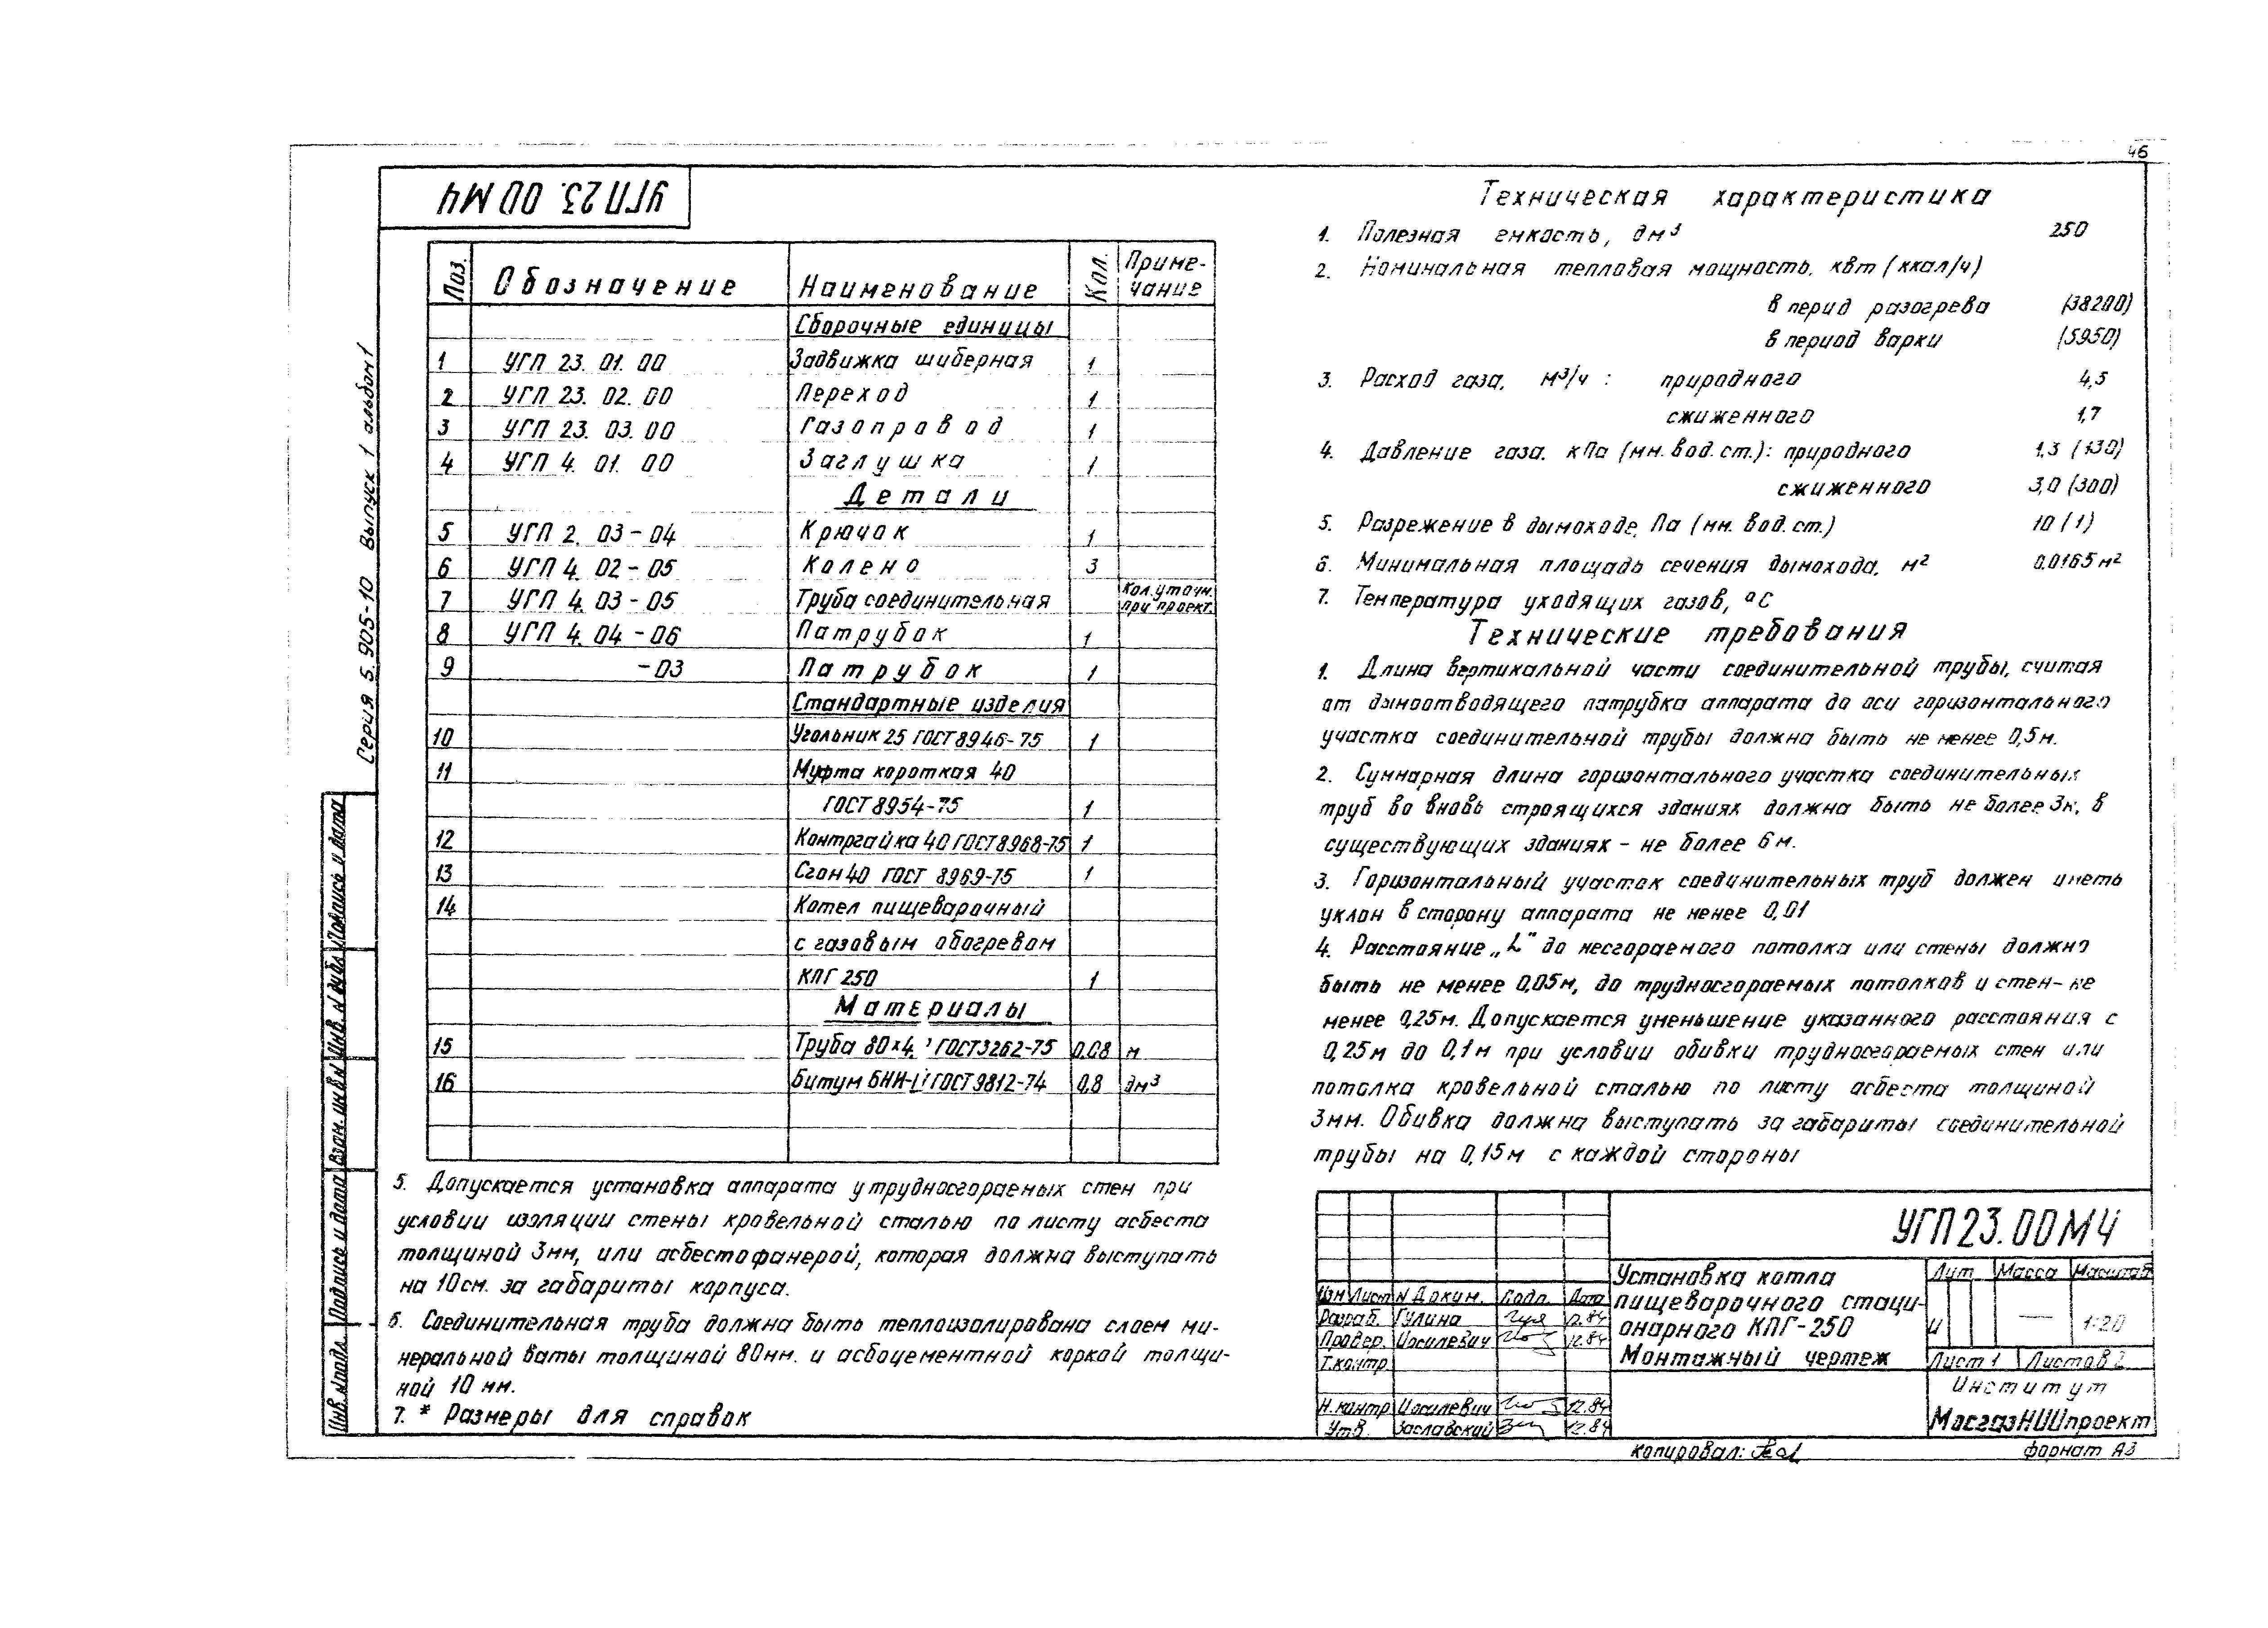 46
УГП 23. 00 МЧ
Серия 5.905-10 Выпуск 1 альбом 1
Поз. Обозначение Наименование Кол. Приме-
чание
Сборочные единицы
1 УГП 23. 01. 00 Задвижка шиберная 1
2 УГП 23. 02. 00 Переход 1
3 УГП 23. 03. 00 Газопровод 1
4 УГП 4. 01. 00 Заглушка 1
Детали
5 УГП 2. 03-04 Крючок 1
6 УГП 4. 02-05 Колено 3
7 УГП 4. 03-05 Труба соединительная Кол. уточн.
при проект.
8 УГП 4. 04-06 Патрубок 1
9 -03 Патрубок 1
Стандартные изделия
10 Угольник 25 ГОСТ 8946-75 1
11 Муфта короткая 40
ГОСТ 8954-75 1
12 Контргайка 40 ГОСТ 8968-75 1
13 Сгон 40 ГОСТ 8969-75 1
14 Котел пищеварочный
с газовым обогревом
КПГ 250 1
Материалы
15 Труба 80×4, ГОСТ 3262-75 0,08 м
16 Битум ГОСТ 9812-74 0,8 дм³
5. Допускается установка аппарата у трудносгораемых стен при
условии изоляции стены кровельной сталью по листу асбеста
толщиной 3мм, или асбестофанерой, которая должна выступать
на 10см. за габариты корпуса.
6. Соединительная труба должна быть теплоизолирована слоем ми-
неральной ваты толщиной 80мм. и асбоцементной коркой толщи-
ной 10 мм.
7. * Размеры для справок
Техническая характеристика
1. Полезная емкость, дм³ 250
2. Номинальная тепловая мощность, квт (ккал/ч)
в перид разогрева (38200)
в период варки (5950)
3. Расход газа, м³/ч : природного 4,5
сжиженного 1,7
4. Давление газа, кПа (мм. вод. ст.): природного 1,3 (130)
сжиженного 3,0 (300)
5. Разрежение в дымоходе, Па (мм. вод. ст.) 10 (1)
6. Минимальная площадь сечения дымохода, м² 0,0165 м²
7. Температура уходящих газов, °С
Технические требования
1. Длина вертикальной части соединительной трубы, считая
от дымоотводящего патрубка аппарата до оси горизонтального
участка соединительной трубы должна быть не менее 0,5м.
2. Суммарная длина горизонтального участка соединительных
труб во вновь строящихся зданиях должна быть не более 3м, в
существующих зданиях - не более 6м.
3. Горизонтальный участок соединительных труб должен иметь
уклон в сторону аппарата не менее 0,01
4. Расстояние „L" до несгораемого потолка или стены должно
быть не менее 0,05м, до трудносгораемых потолков и стен- не
менее 0,25м. Допускается уменьшение указанного расстояния с
0,25м до 0,1м при условии обивки трудносгораемых стен или
потолка кровельной сталью по листу асбеста толщиной
3мм. Обивка должна выступать за габариты соединительной
трубы на 0,15м с каждой стороны
УГП 23. 00 МЧ
Изм Лист N Докум. Подп. Дата
Разраб. Гулина 12.84
Провер. Иосилевич 12.84
Т.контр
Н.контр Иосилевич 12.84
Утв. Заславский 12.84
Установка котла
пищеварочного стаци-
онарного КПГ-250
Монтажный чертеж
Лит Масса Масштаб
И — 1:20
Лист 1 Листов 2
Институт
МосгазНИИпроект
Копировал:
формат А3
Инв. N подл. Подпись и дата Взам. инв N Инв. N дубл. Подпись и дата